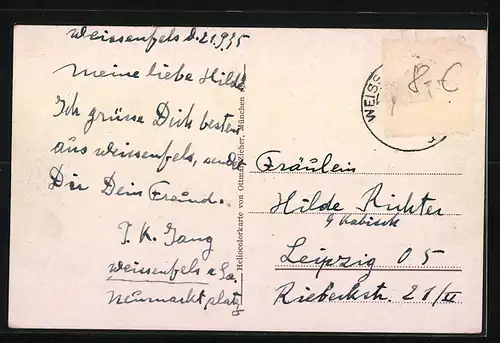 Weissenfels d. 21.9.35
Meine liebe Hilde
Ich grüsse Dich bestens
aus Weissenfels, sendet
Dir Dein Freund.
T. K. Gang
Weissenfels a. Sa.
Neumarktplatz
Heliocolorkarte von Ottmar Zieher, München
WEISS
8,- €
Fräulein
Hilde Richter
b Kabisch
Leipzig O5
Riebeckstr. 21/II